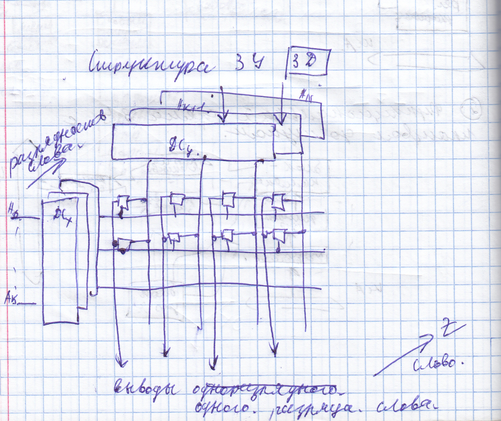 Структура ЗУ 3Д
Aк+1 An
разрядность
слова.
DCy
A0
DCx
Aк
Z
слово.
выводы одноразрядного.
одного разряда слова.